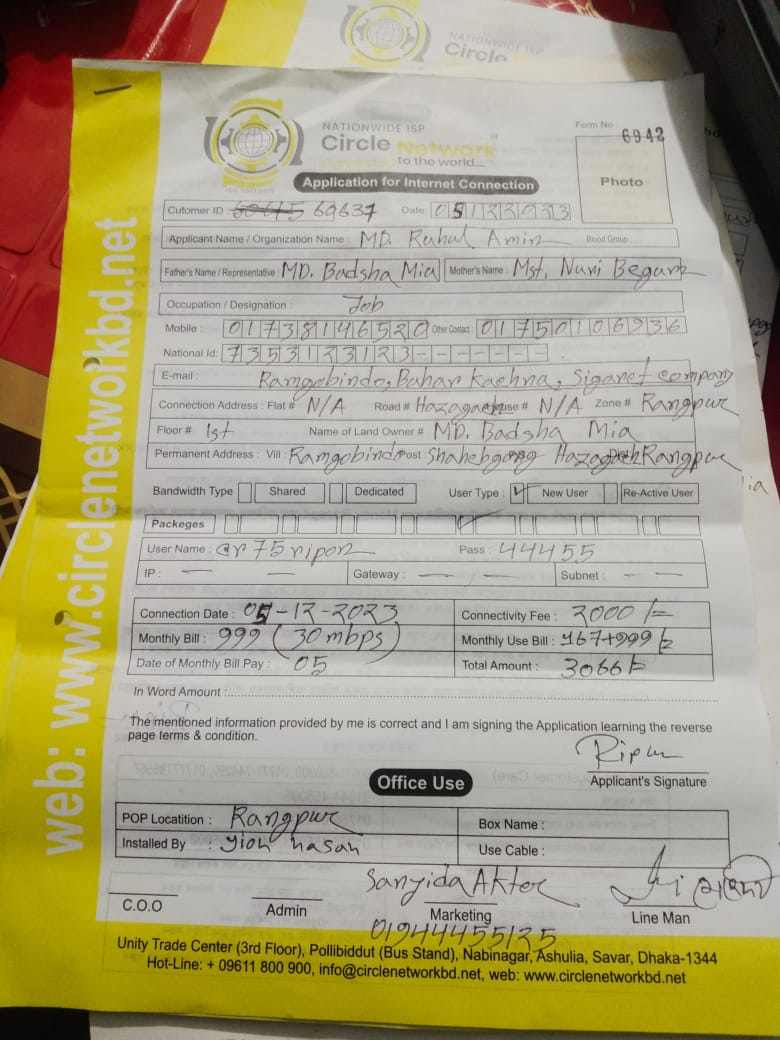 NATIONWIDE ISP
Circle
NATIONWIDE ISP
Circle Network
to the world...
Form No
6942
Photo
Application for Internet Connection
Cutomer ID 69637 Date: 05122023
Applicant Name / Organization Name : MD. Ruhul Amin Blood Group :
Father's Name / Representative : MD. Badsha Mia Mother's Name : Mst. Nuri Begum
Occupation / Designation : Job
Mobile : 01738146520 Other Contact : 01750106936
National Id: 7353123123-------
E-mail : Ramgobindo, Bahar Kachna, Sigaret company
Connection Address : Flat # N/A Road # Hazagach House # N/A Zone # Rangpur
Floor # 1st Name of Land Owner # MD. Badsha Mia
Permanent Address : Vill : Ramgobindo Post : Shahebgong Hazogach Rangpur
Bandwidth Type Shared Dedicated User Type : ✓ New User Re-Active User
Packeges ✓
User Name : @r75ripon Pass : 44455
IP : — — Gateway : — — Subnet : — —
Connection Date : 05-12-2023 Connectivity Fee : 2000/=
Monthly Bill : 999 (30 mbps) Monthly Use Bill : 167+999/=
Date of Monthly Bill Pay : 05 Total Amount : 3066/=
In Word Amount :
The mentioned information provided by me is correct and I am signing the Application learning the reverse
page terms & condition.
Ripon
Applicant's Signature
Office Use
POP Locatition : Rangpur Box Name :
Installed By : jion hasan Use Cable :
Sanjida Akter
C.O.O Admin Marketing Line Man
01944455125
Unity Trade Center (3rd Floor), Pollibiddut (Bus Stand), Nabinagar, Ashulia, Savar, Dhaka-1344
Hot-Line: + 09611 800 900, info@circlenetworkbd.net, web: www.circlenetworkbd.net
web: www.circlenetworkbd.net